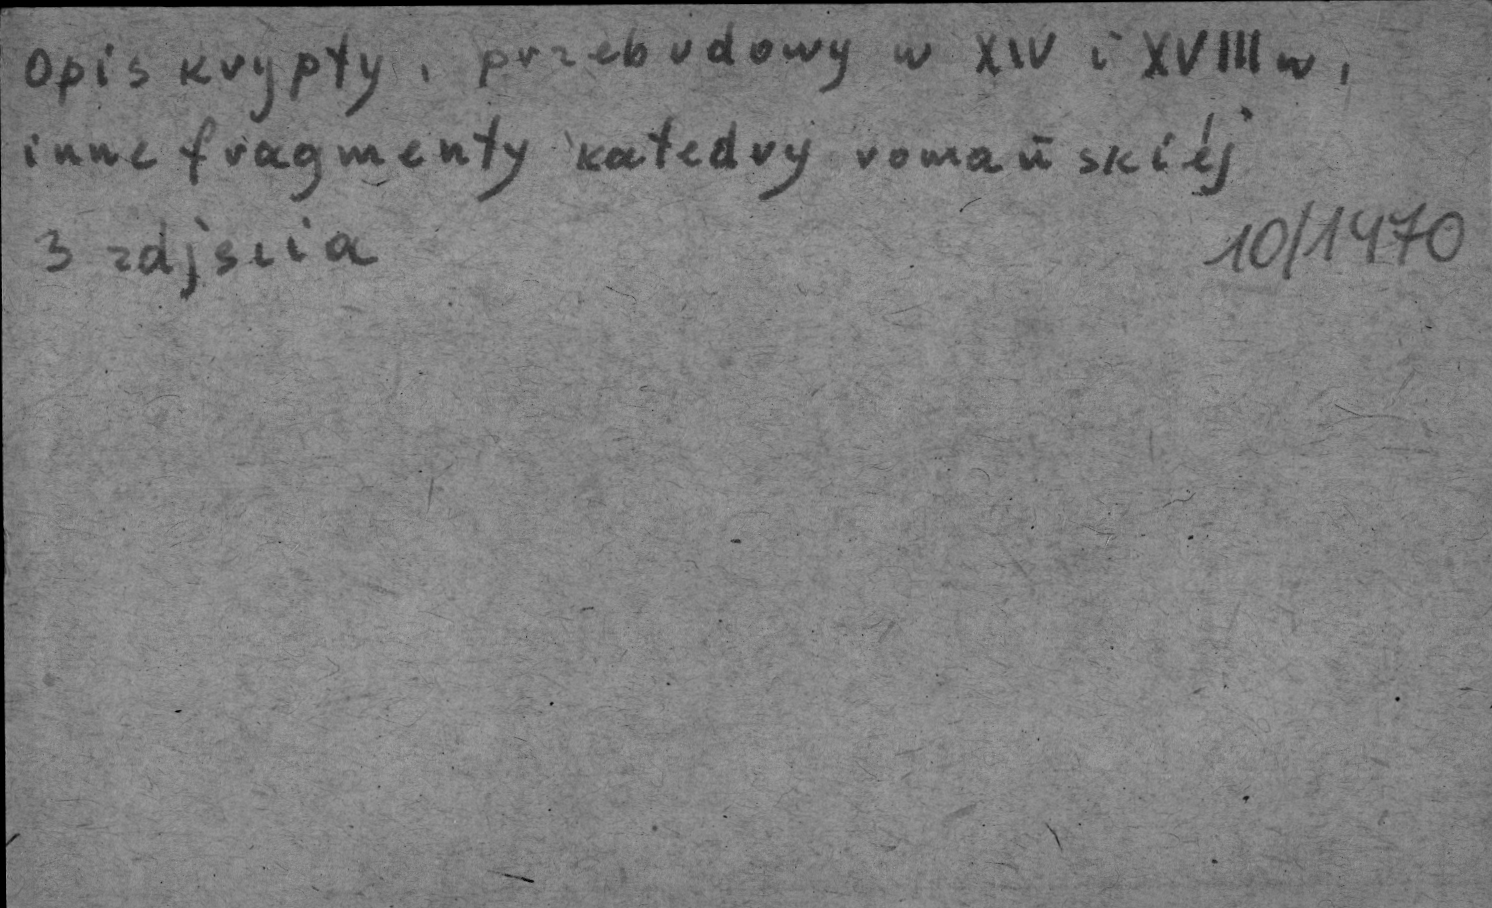 Opis krypty, przebudowy w XIV i XVIII w,
inne fragmenty katedry romańskiej
3 zdjscia 10/1970